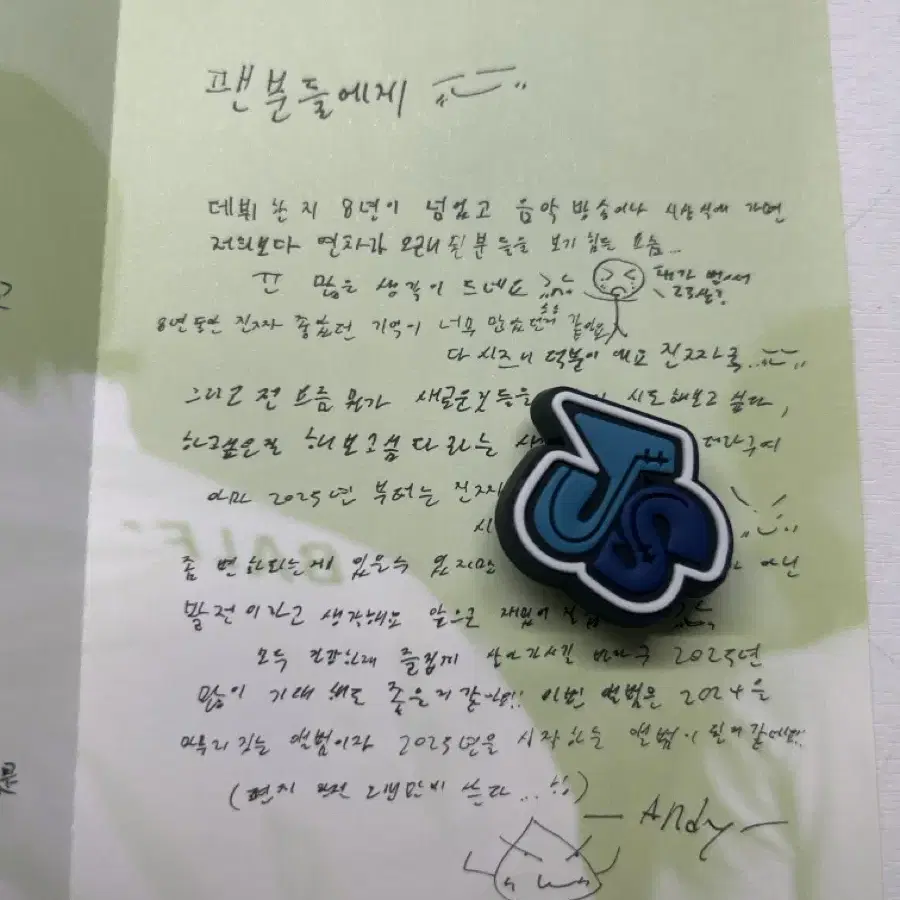 팬분들에게
데뷔 한지 8년이 넘었고 음악 방송이나 시상식에 가면
저희보다 연차가 오래 되신 분들을 보기 힘든 요즘..
ㅠ 많은 생각이 드네요
내가 벌써
고참?
8년동안 진짜 좋았던 기억이 너무 많았던거 같아요
다 시즈니 덕분이에요 진짜루..
그리고 전 요즘 뭔가 새로운것들을 시도해보고 싶다,
하고싶은걸 해보고싶다라는 더라구요
아마 2025년 부터는 진짜
시
좀 변하는게 있을수 있지만 아닌
발전이라고 생각해요 앞으로 재밌어질
모두 건강하게 즐겁게 살아가시길 바라구 2025년
많이 기대 해도 좋을거 같아요!! 이번 앨범은 2024을
마무리 짓는 앨범이자 2025년을 시작하는 앨범이 될거 같아요!!
(편지 완전 오랜만에 쓴다...!!)
— Andy —
JS